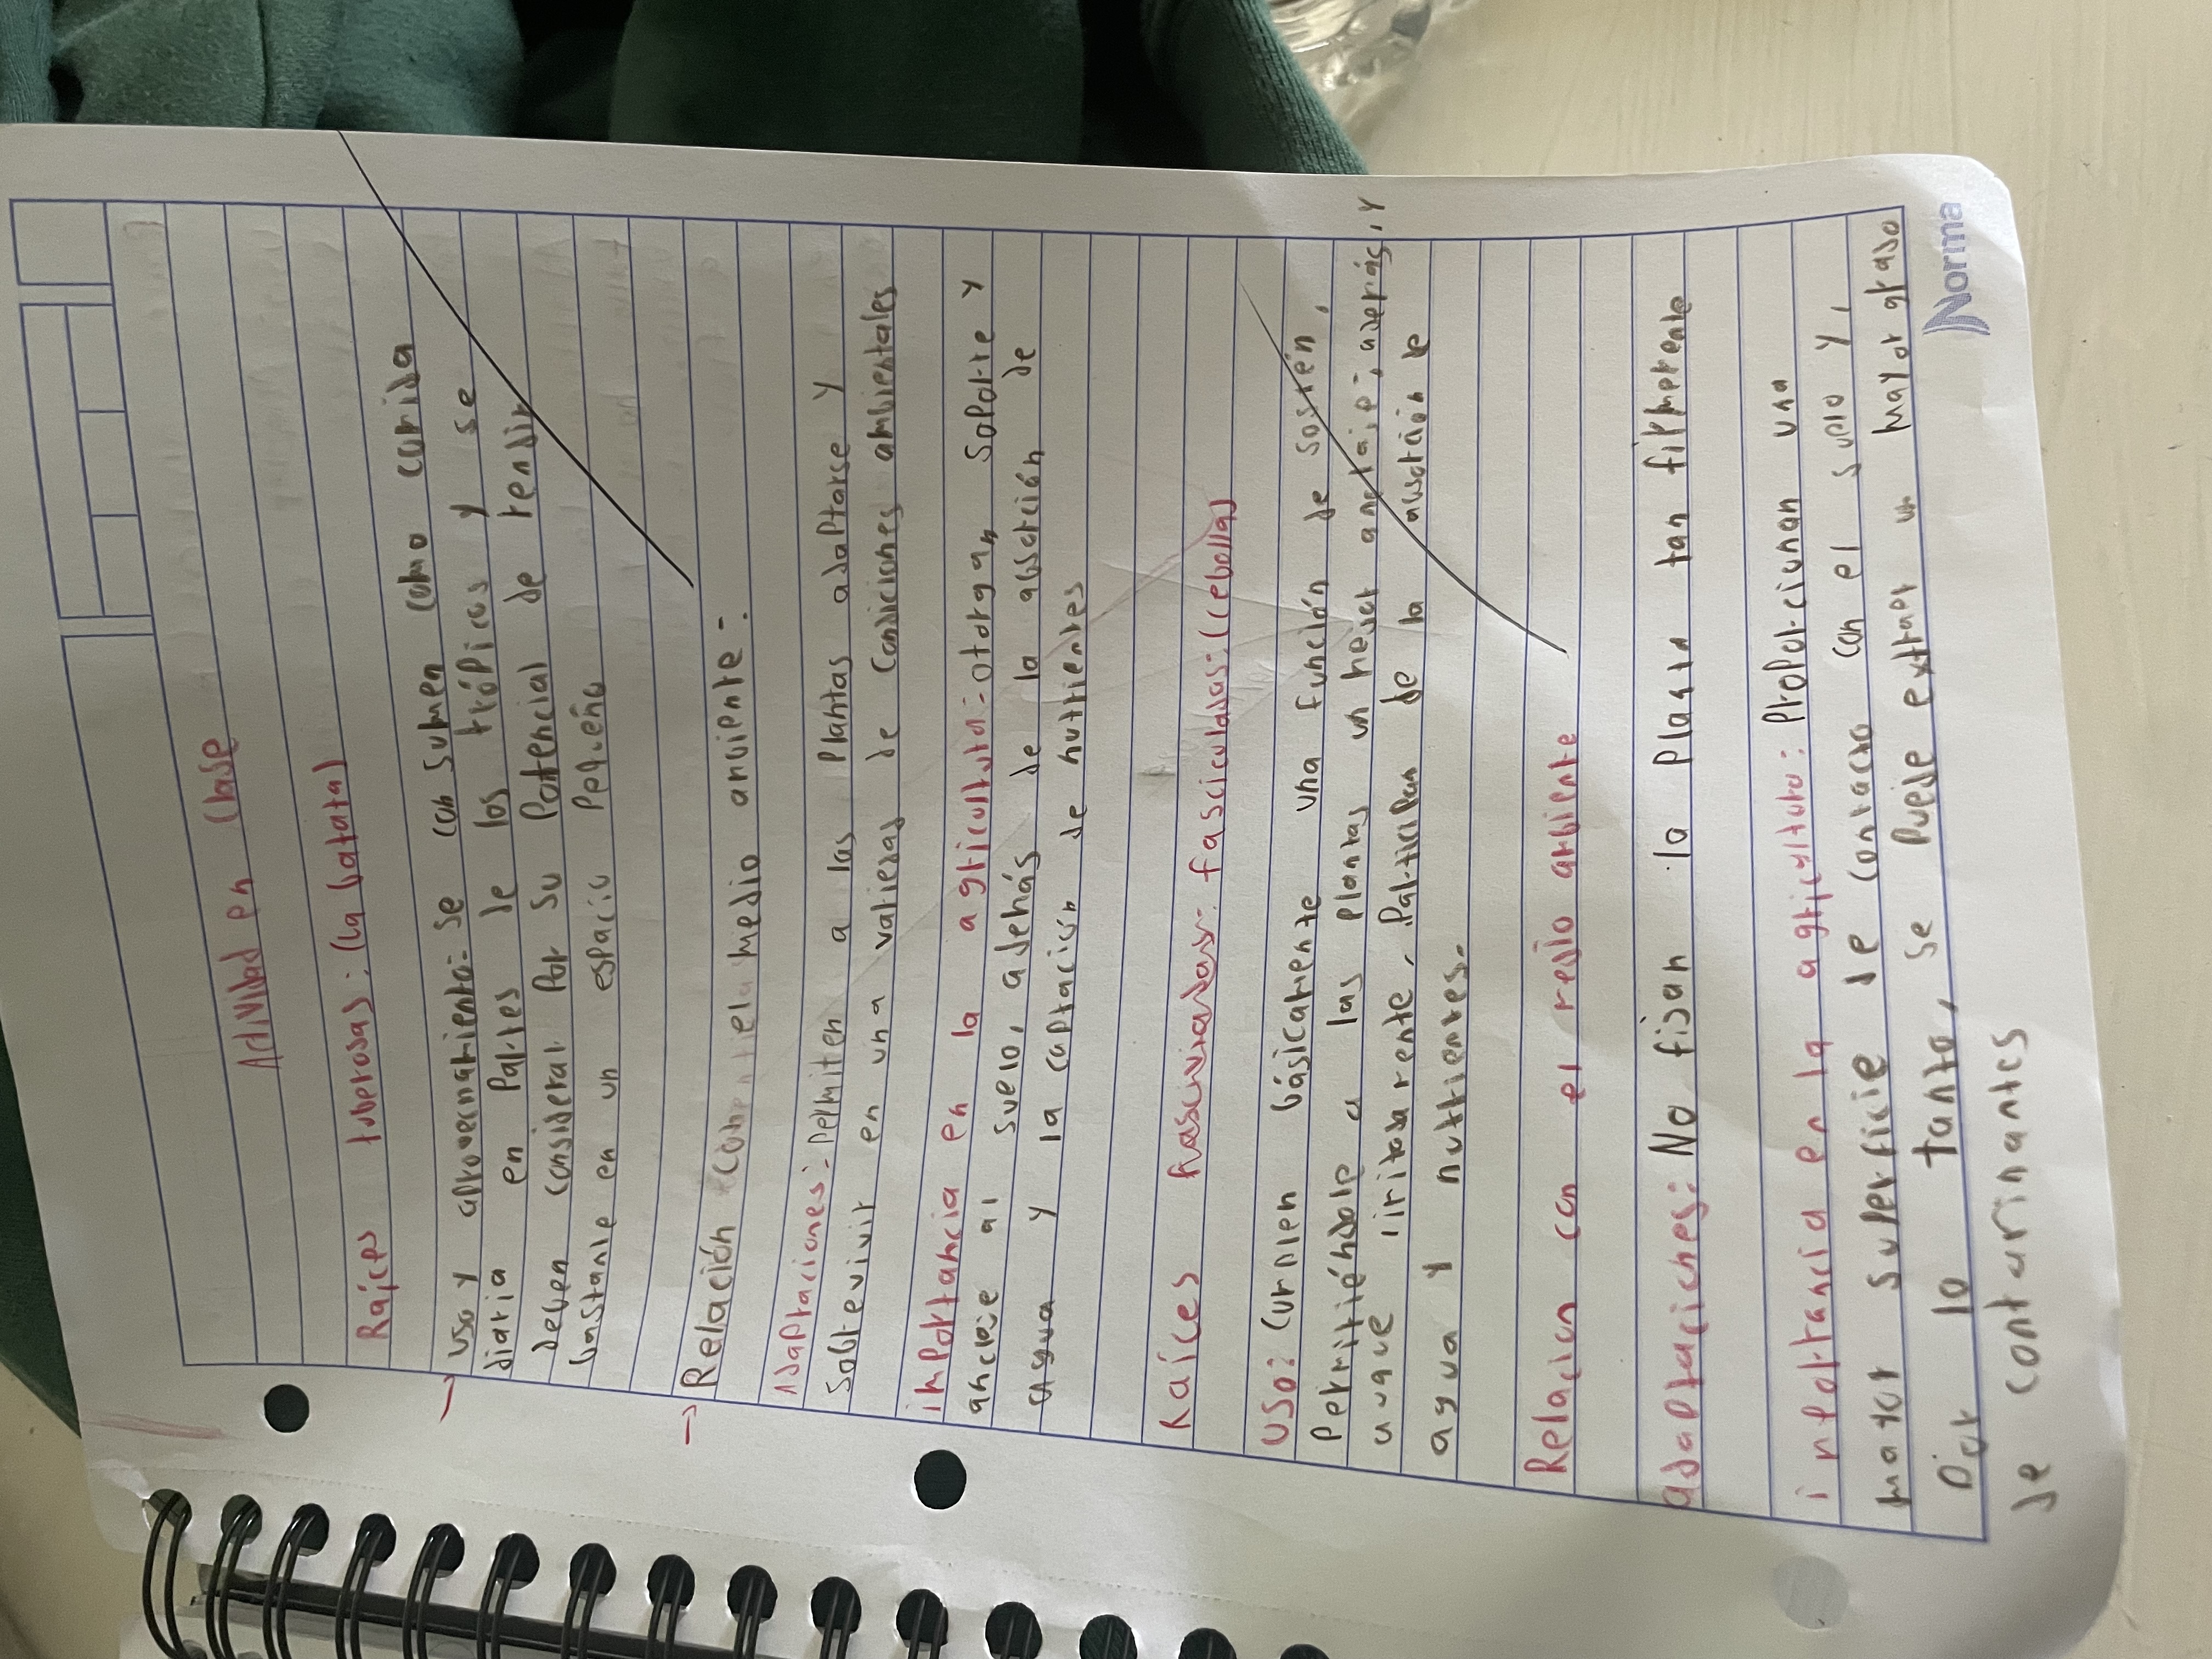 Actividad en Clase
Raíces tuberosas: (La batata)
uso y aprovecmatiento: Se con sumen como comida
diaria en Partes de los trópicos y se
deben considerar Por su Potencial de rendir
bastante en un espacio Pequeño
→ Relación con el medio anviente:
Adaptaciones: Permiten a las Plantas adaptarse y
Sobrevivir en una variedad de Condiciones ambientales
importancia en la agricultura: otorgan Soporte y
anclaje al suelo, además de la absorción de
agua y la captación de nutrientes
Raíces fasciculadas: (cebolla)
USO: Cumplen básicamente una función de sostén,
Permitiéndole a las Plantas un mejor anclaje; además, y
aunque limitadamente, Participan de la absorción de
agua y nutrientes.
Relación con el medio ambiente
adaptaciones: No fijan la Planta tan firmemente
importancia en la agricultura: Proporcionan una
mayor superficie de contacto con el suelo y,
Por lo tanto, se Puede extraer un mayor grado
de contaminantes
Norma